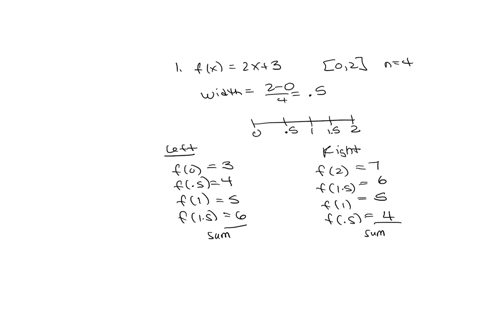 1. f(x) = 2x+3 [0,2] n=4
width = 2-0/4 = .5
0 .5 1 1.5 2
Left
f(0) = 3
f(.5) = 4
f(1) = 5
f(1.5) = 6
sum
Right
f(2) = 7
f(1.5) = 6
f(1) = 5
f(.5) = 4
sum